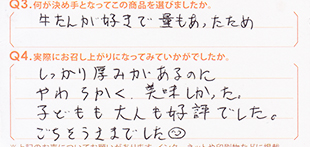 Q3.何が決め手となってこの商品を選びましたか。
牛たんが好きで量もあったため
Q4.実際にお召し上がりになってみていかがでしたか。
しっかり厚みがあるのに
やわらかく、美味しかった。
子どもも大人も好評でした。
ごちそうさまでした